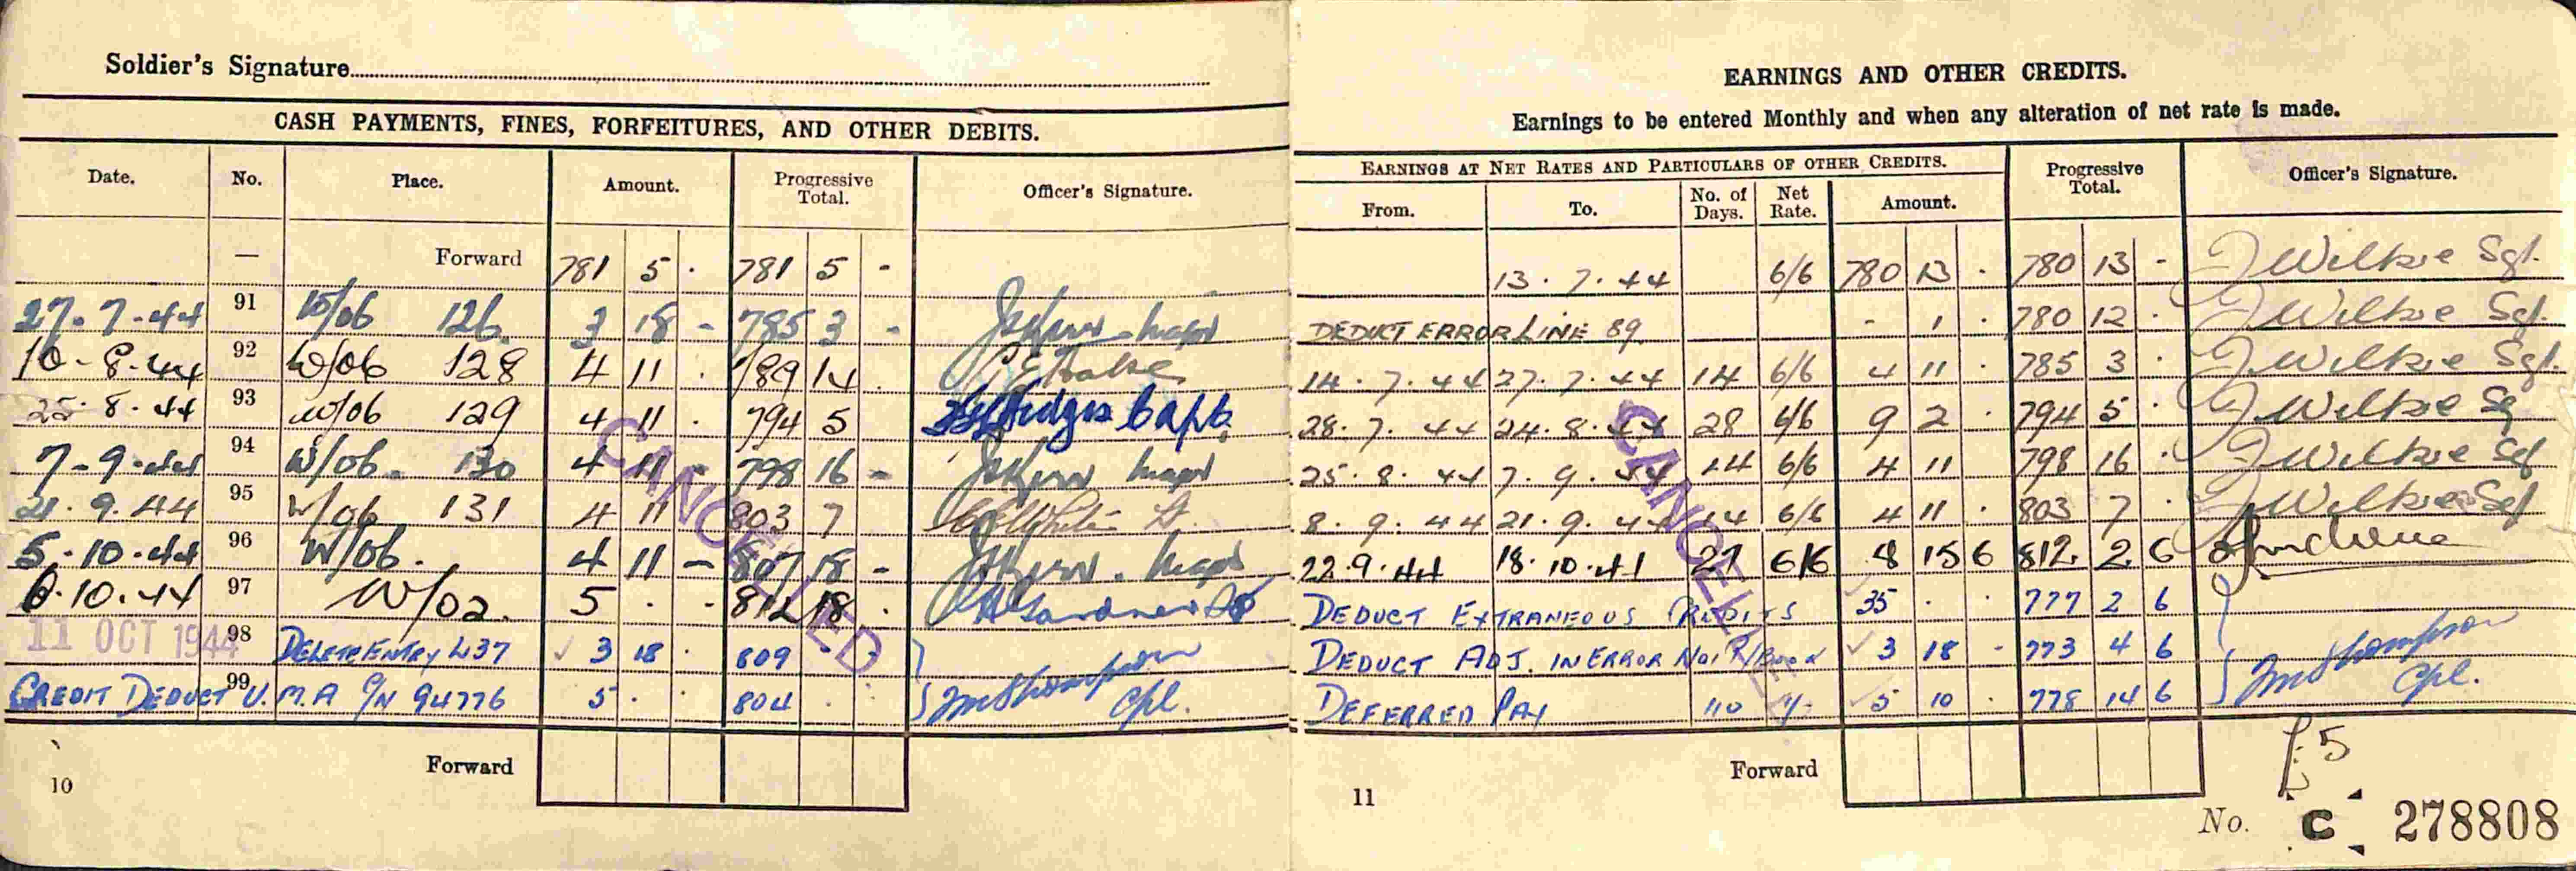 Soldier's Signature
CASH PAYMENTS, FINES, FORFEITURES, AND OTHER DEBITS.
Date. No. Place. Amount. Progressive Total. Officer's Signature.
— Forward 781 5 · 781 5 -
27-7-44 91 126 3 18 - 785 3 - Major
10-8-44 92 W/06 128 4 11 · 789 14 ·
25·8·44 93 W/06 129 4 11 · 794 5 Capt.
7-9-44 94 W/06 130 4 11 - 798 16 - Major
21·9·44 95 W/06 131 4 11 803 7 Lt.
5-10-44 96 W/06. 4 11 - 807 18 - Major
6·10·44 97 W/02. 5 · - 812 18 ·
11 OCT 1944 98 DELETE ENTRY L37 3 18 · 809 · ·
99 CREDIT DEDUCT U.M.A C/N 94776 5 · · 804 · · Thompson Cpl.
CANCELLED
Forward
10
EARNINGS AND OTHER CREDITS.
Earnings to be entered Monthly and when any alteration of net rate is made.
EARNINGS AT NET RATES AND PARTICULARS OF OTHER CREDITS. Progressive Total. Officer's Signature.
From. To. No. of Days. Net Rate. Amount.
13·7·44 6/6 780 13 · 780 13 - J Wilkie Sgt.
DEDUCT ERROR LINE 89. - 1 · 780 12 · J Wilkie Sgt.
14·7·44 27·7·44 14 6/6 4 11 · 785 3 · J Wilkie Sgt.
28·7·44 24·8·44 28 6/6 9 2 · 794 5 · J Wilkie Sg
25·8·44 7·9·44 14 6/6 4 11 798 16 · J Wilkie Sgt
8·9·44 21·9·44 14 6/6 4 11 · 803 7 · J Wilkie Sgt
22·9·44 18·10·44 27 6/6 8 15 6 812 2 6
DEDUCT EXTRANEOUS CREDITS 35 · · 777 2 6
DEDUCT ADJ. IN ERROR No1 P/Book 3 18 - 773 4 6
DEFERRED PAY 110 1/- 5 10 · 778 14 6 Thompson Cpl.
CANCELLED
Forward
11
5
No. C 278808